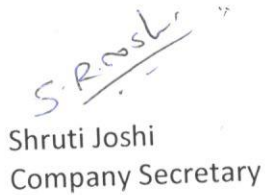 S.R.Joshi
Shruti Joshi
Company Secretary